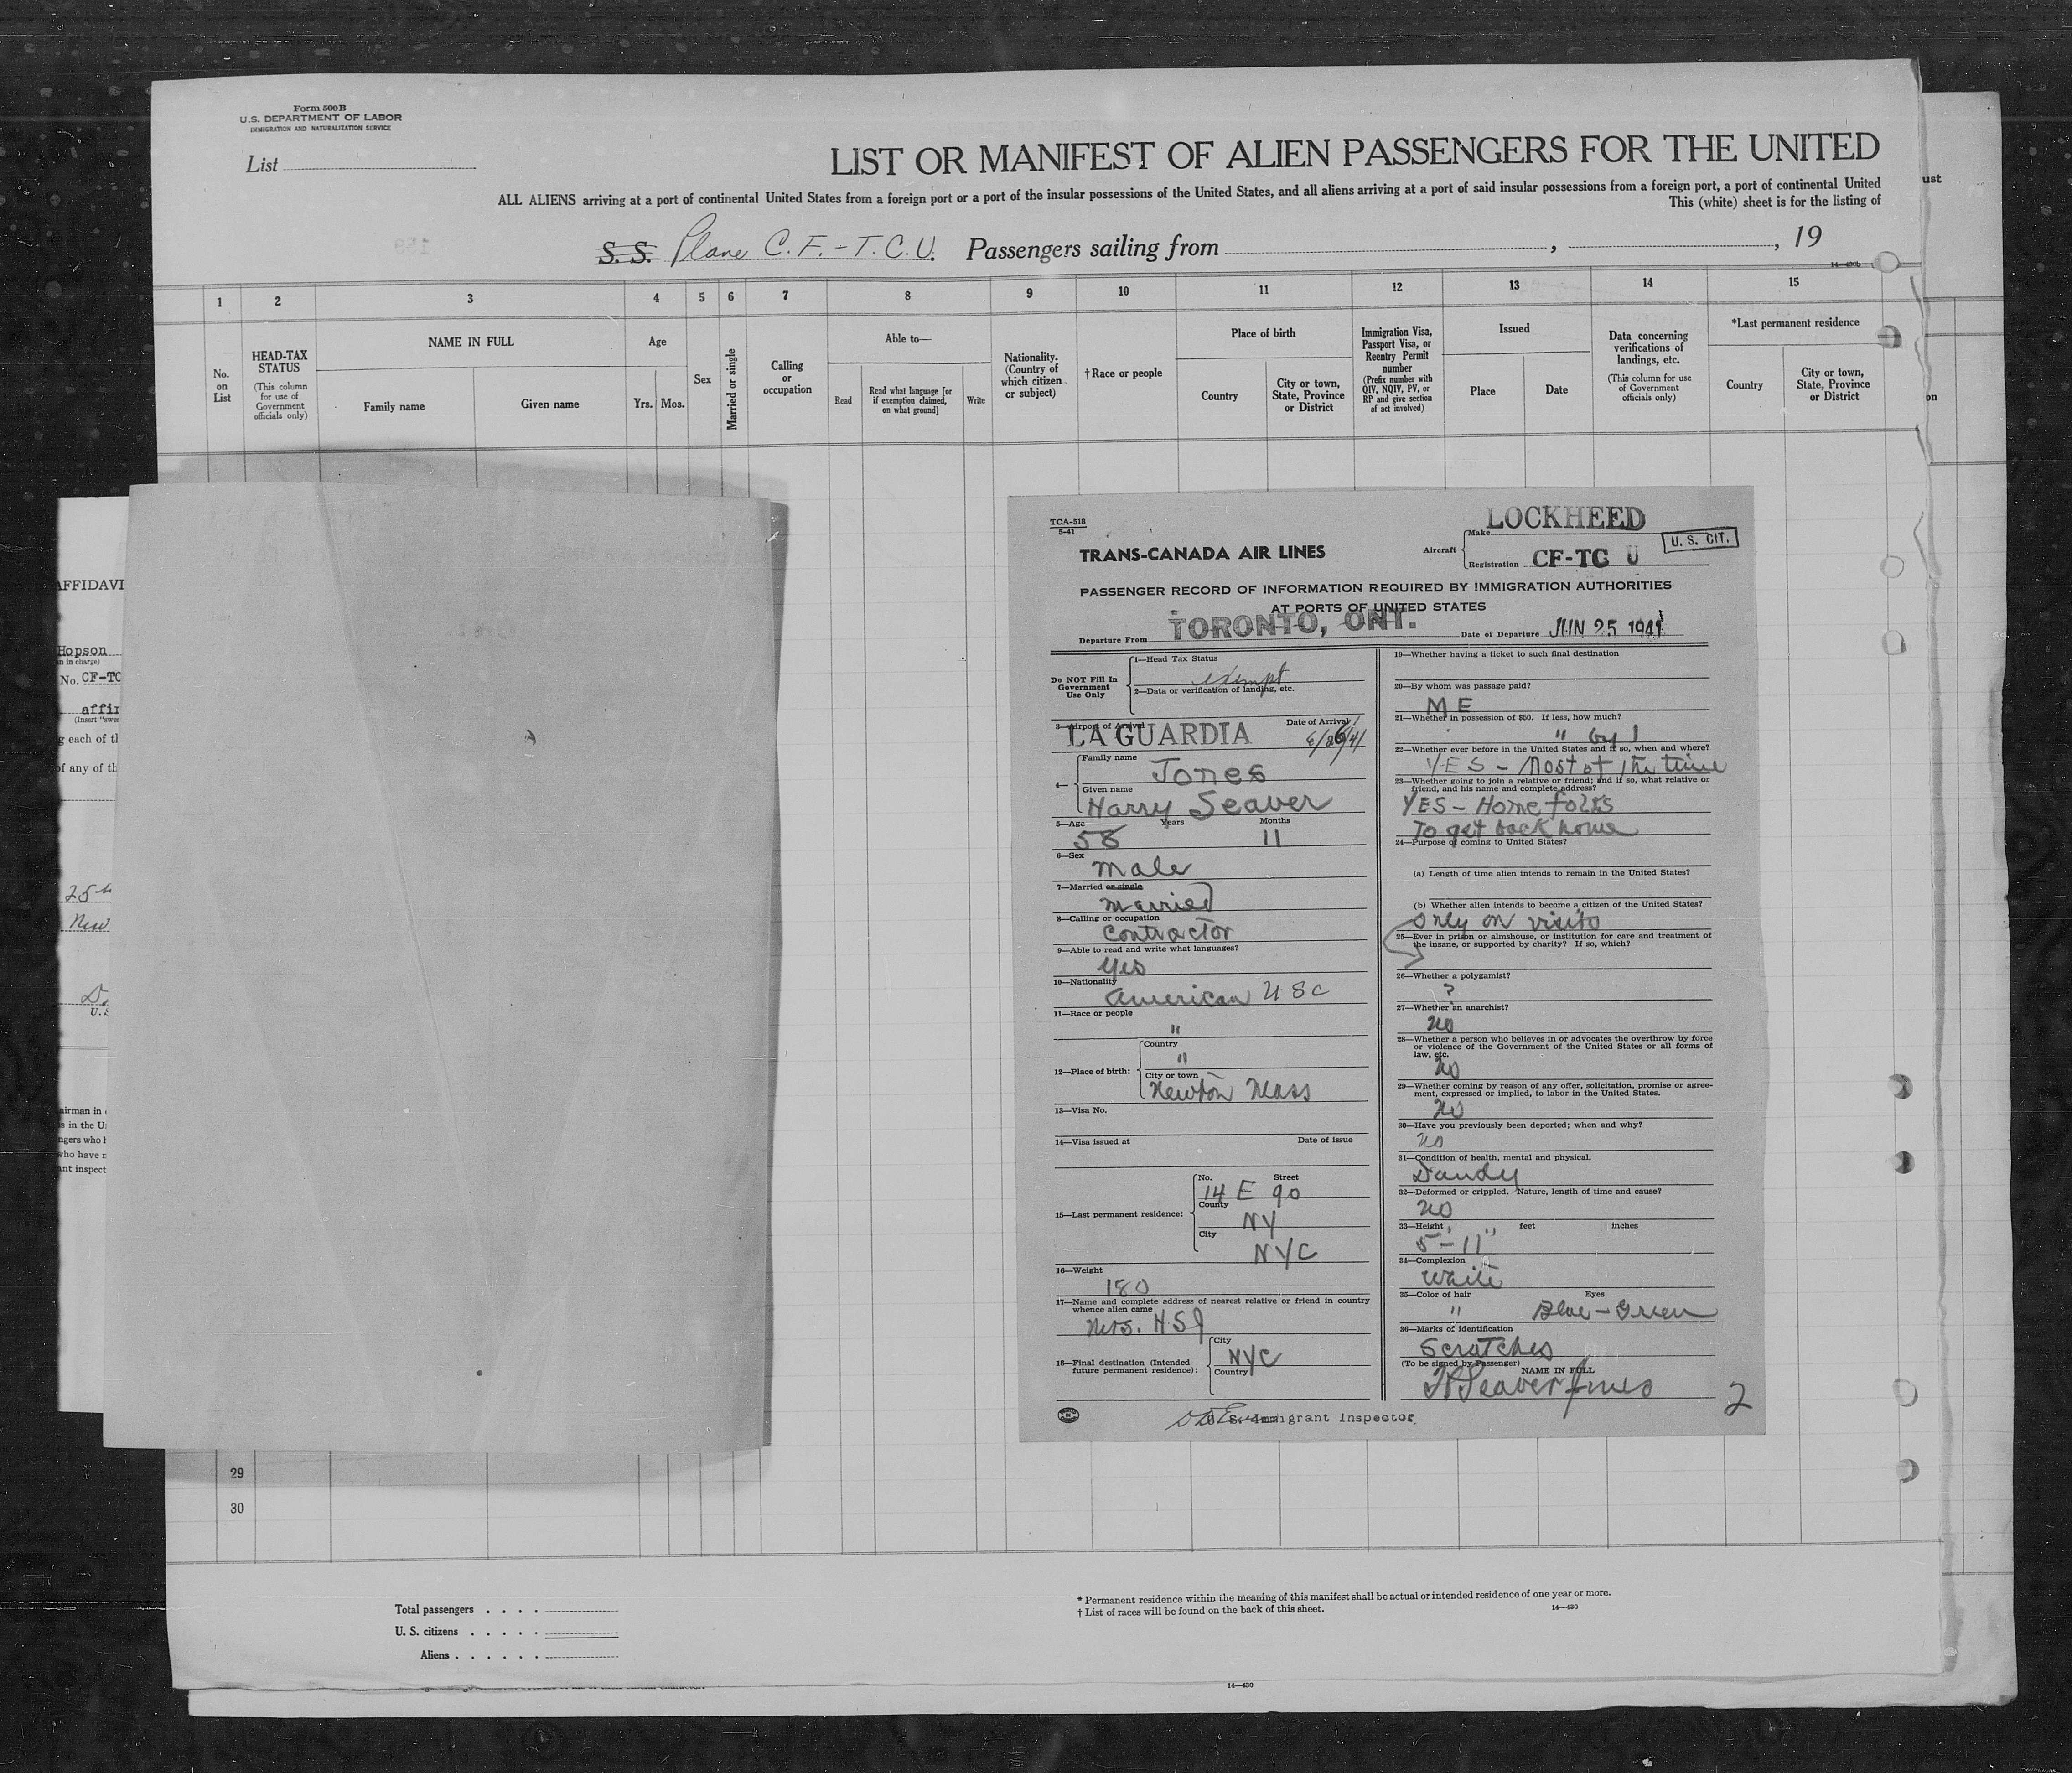 Form 500B
U.S. DEPARTMENT OF LABOR
IMMIGRATION AND NATURALIZATION SERVICE
List
LIST OR MANIFEST OF ALIEN PASSENGERS FOR THE UNITED
ALL ALIENS arriving at a port of continental United States from a foreign port or a port of the insular possessions of the United States, and all aliens arriving at a port of said insular possessions from a foreign port, a port of continental United
This (white) sheet is for the listing of
S. S. Plane C. F. - T. C. U. Passengers sailing from , , 19
1 2 3 4 5 6 7 8 9 10 11 12 13 14 15
No. on List
HEAD-TAX STATUS
(This column for use of Government officials only)
NAME IN FULL
Family name
Given name
Age
Yrs. Mos.
Sex
Married or single
Calling or occupation
Able to—
Read
Read what language [or if exemption claimed, on what ground]
Write
Nationality. (Country of which citizen or subject)
†Race or people
Place of birth
Country
City or town, State, Province or District
Immigration Visa, Passport Visa, or Reentry Permit number
(Prefix number with QIV, NQIV, PV, or RP and give section of act involved)
Issued
Place
Date
Data concerning verifications of landings, etc.
(This column for use of Government officials only)
*Last permanent residence
Country
City or town, State, Province or District
ust
on
AFFIDAVI
Hopson
n in charge)
No. CF-TC
affir
(Insert "swea
g each of th
of any of th
25th
New
D.
U. S
airman in
s in the U
ngers who h
who have n
ant inspect
TCA-518
5-41
TRANS-CANADA AIR LINES
Aircraft
Make LOCKHEED
Registration CF-TC U
U. S. CIT.
PASSENGER RECORD OF INFORMATION REQUIRED BY IMMIGRATION AUTHORITIES
AT PORTS OF UNITED STATES
Departure From TORONTO, ONT. Date of Departure JUN 25 1941
Do NOT Fill In Government Use Only
1—Head Tax Status
exempt
2—Data or verification of landing, etc.
3—Airport of Arrival Date of Arrival
LA GUARDIA 6/26/41
4—
Family name
Jones
Given name
Harry Seaver
5—Age Years Months
58 11
6—Sex
Male
7—Married or single
Married
8—Calling or occupation
Contractor
9—Able to read and write what languages?
Yes
10—Nationality
American USC
11—Race or people
"
12—Place of birth:
Country
"
City or town
Newton Mass
13—Visa No.
14—Visa issued at Date of issue
15—Last permanent residence:
No. Street
14 E 90
County
NY
City
NYC
16—Weight
180
17—Name and complete address of nearest relative or friend in country
whence alien came
Mrs. HSJ
18—Final destination (Intended future permanent residence):
City
NYC
Country
19—Whether having a ticket to such final destination
20—By whom was passage paid?
ME
21—Whether in possession of $50. If less, how much?
" by 1
22—Whether ever before in the United States and if so, when and where?
YES - Most of the time
23—Whether going to join a relative or friend; and if so, what relative or
friend, and his name and complete address?
YES - Home folks
To get back home
24—Purpose of coming to United States?
(a) Length of time alien intends to remain in the United States?
(b) Whether alien intends to become a citizen of the United States?
Only on visits
25—Ever in prison or almshouse, or institution for care and treatment of
the insane, or supported by charity? If so, which?
26—Whether a polygamist?
?
27—Whether an anarchist?
no
28—Whether a person who believes in or advocates the overthrow by force
or violence of the Government of the United States or all forms of
law, etc.
no
29—Whether coming by reason of any offer, solicitation, promise or agree-
ment, expressed or implied, to labor in the United States.
no
30—Have you previously been deported; when and why?
no
31—Condition of health, mental and physical.
Dandy
32—Deformed or crippled. Nature, length of time and cause?
no
33—Height feet inches
5' - 11"
34—Complexion
White
35—Color of hair Eyes
" Blue - Green
36—Marks of identification
Scratches
(To be signed by Passenger)
NAME IN FULL
H Seaver Jones
U. S. Immigrant Inspector.
2
29
30
Total passengers
U. S. citizens
Aliens
* Permanent residence within the meaning of this manifest shall be actual or intended residence of one year or more.
† List of races will be found on the back of this sheet.
14—430
14—430